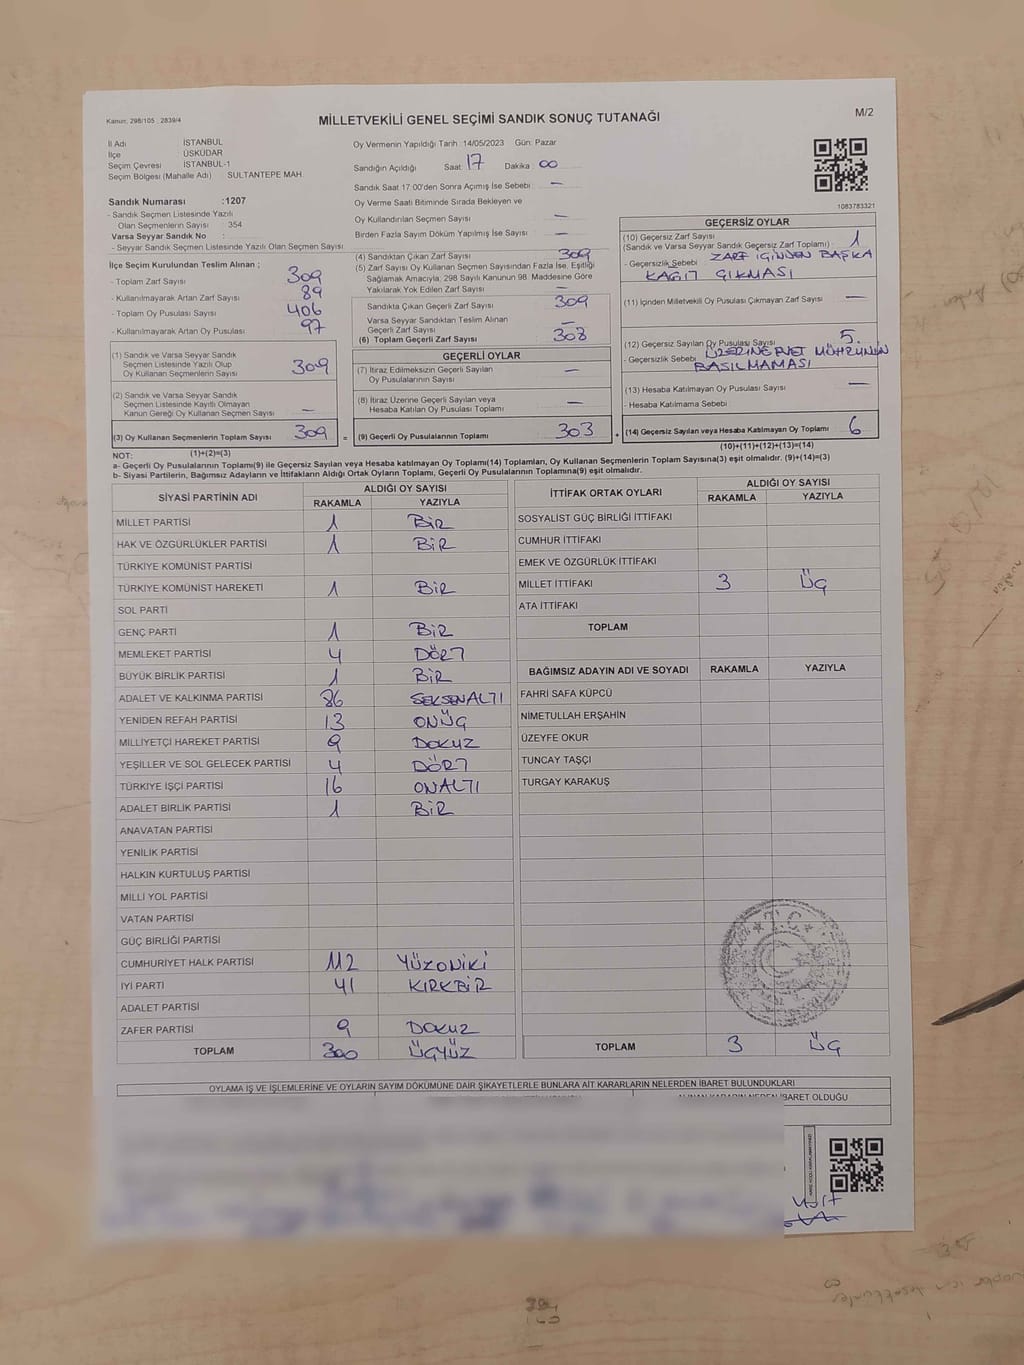 Kanun: 298/105 : 2839/4
MİLLETVEKİLİ GENEL SEÇİMİ SANDIK SONUÇ TUTANAĞI
M/2
İl Adı İSTANBUL
İlçe ÜSKÜDAR
Seçim Çevresi İSTANBUL-1
Seçim Bölgesi (Mahalle Adı) SULTANTEPE MAH.
Sandık Numarası :1207
- Sandık Seçmen Listesinde Yazılı
Olan Seçmenlerin Sayısı : 354
Varsa Seyyar Sandık No :
- Seyyar Sandık Seçmen Listesinde Yazılı Olan Seçmen Sayısı:
İlçe Seçim Kurulundan Teslim Alınan ;
- Toplam Zarf Sayısı 309
- Kullanılmayarak Artan Zarf Sayısı 89
- Toplam Oy Pusulası Sayısı 406
- Kullanılmayarak Artan Oy Pusulası 97
(1) Sandık ve Varsa Seyyar Sandık
Seçmen Listesinde Yazılı Olup
Oy Kullanan Seçmenlerin Sayısı 309
(2) Sandık ve Varsa Seyyar Sandık
Seçmen Listesinde Kayıtlı Olmayan
Kanun Gereği Oy Kullanan Seçmen Sayısı —
(3) Oy Kullanan Seçmenlerin Toplam Sayısı 309 =
Oy Vermenin Yapıldığı Tarih :14/05/2023 Gün: Pazar
Sandığın Açıldığı Saat : 17 Dakika : 00
Sandık Saat 17:00'den Sonra Açımış İse Sebebi : —
Oy Verme Saati Bitiminde Sırada Bekleyen ve
Oy Kullandırılan Seçmen Sayısı : —
Birden Fazla Sayım Döküm Yapılmış İse Sayısı : —
(4) Sandıktan Çıkan Zarf Sayısı 309
(5) Zarf Sayısı Oy Kullanan Seçmen Sayısından Fazla İse, Eşitliği
Sağlamak Amacıyla; 298 Sayılı Kanunun 98. Maddesine Göre
Yakılarak Yok Edilen Zarf Sayısı —
Sandıkta Çıkan Geçerli Zarf Sayısı 309
Varsa Seyyar Sandıktan Teslim Alınan
Geçerli Zarf Sayısı —
(6) Toplam Geçerli Zarf Sayısı 308
GEÇERLİ OYLAR
(7) İtiraz Edilmeksizin Geçerli Sayılan
Oy Pusulalarının Sayısı —
(8) İtiraz Üzerine Geçerli Sayılan veya
Hesaba Katılan Oy Pusulası Toplamı —
(9) Geçerli Oy Pusulalarının Toplamı 303 +
1083783321
GEÇERSİZ OYLAR
(10) Geçersiz Zarf Sayısı 1
(Sandık ve Varsa Seyyar Sandık Geçersiz Zarf Toplamı) :
- Geçersizlik Sebebi : ZARF İÇİNDEN BAŞKA
KAĞIT ÇIKMASI
(11) İçinden Milletvekili Oy Pusulası Çıkmayan Zarf Sayısı —
(12) Geçersiz Sayılan Oy Pusulası Sayısı 5
- Geçersizlik Sebebi : ÜZERİNE EVET MÜHRÜNÜN
BASILMAMASI
(13) Hesaba Katılmayan Oy Pusulası Sayısı —
- Hesaba Katılmama Sebebi :
(14) Geçersiz Sayılan veya Hesaba Katılmayan Oy Toplamı 6
NOT: (1)+(2)=(3) (10)+(11)+(12)+(13)=(14)
a- Geçerli Oy Pusulalarının Toplamı(9) ile Geçersiz Sayılan veya Hesaba katılmayan Oy Toplamı(14) Toplamları, Oy Kullanan Seçmenlerin Toplam Sayısına(3) eşit olmalıdır. (9)+(14)=(3)
b- Siyasi Partilerin, Bağımsız Adayların ve İttifakların Aldığı Ortak Oyların Toplamı, Geçerli Oy Pusulalarının Toplamına(9) eşit olmalıdır.
SİYASİ PARTİNİN ADI ALDIĞI OY SAYISI
RAKAMLA YAZIYLA
MİLLET PARTİSİ 1 BİR
HAK VE ÖZGÜRLÜKLER PARTİSİ 1 BİR
TÜRKİYE KOMÜNİST PARTİSİ
TÜRKİYE KOMÜNİST HAREKETİ 1 BİR
SOL PARTİ
GENÇ PARTİ 1 BİR
MEMLEKET PARTİSİ 4 DÖRT
BÜYÜK BİRLİK PARTİSİ 1 BİR
ADALET VE KALKINMA PARTİSİ 86 SEKSENALTI
YENİDEN REFAH PARTİSİ 13 ONÜÇ
MİLLİYETÇİ HAREKET PARTİSİ 9 DOKUZ
YEŞİLLER VE SOL GELECEK PARTİSİ 4 DÖRT
TÜRKİYE İŞÇİ PARTİSİ 16 ONALTI
ADALET BİRLİK PARTİSİ 1 BİR
ANAVATAN PARTİSİ
YENİLİK PARTİSİ
HALKIN KURTULUŞ PARTİSİ
MİLLİ YOL PARTİSİ
VATAN PARTİSİ
GÜÇ BİRLİĞİ PARTİSİ
CUMHURİYET HALK PARTİSİ 112 YÜZONİKİ
İYİ PARTİ 41 KIRKBİR
ADALET PARTİSİ
ZAFER PARTİSİ 9 DOKUZ
TOPLAM 300 ÜÇYÜZ
İTTİFAK ORTAK OYLARI ALDIĞI OY SAYISI
RAKAMLA YAZIYLA
SOSYALİST GÜÇ BİRLİĞİ İTTİFAKI
CUMHUR İTTİFAKI
EMEK VE ÖZGÜRLÜK İTTİFAKI
MİLLET İTTİFAKI 3 ÜÇ
ATA İTTİFAKI
TOPLAM
BAĞIMSIZ ADAYIN ADI VE SOYADI RAKAMLA YAZIYLA
FAHRİ SAFA KÜPCÜ
NİMETULLAH ERŞAHİN
ÜZEYFE OKUR
TUNCAY TAŞÇI
TURGAY KARAKUŞ
T.C.
TOPLAM 3 ÜÇ
OYLAMA İŞ VE İŞLEMLERİNE VE OYLARIN SAYIM DÖKÜMÜNE DAİR ŞİKAYETLERLE BUNLARA AİT KARARLARIN NELERDEN İBARET BULUNDUKLARI
İBARET OLDUĞU